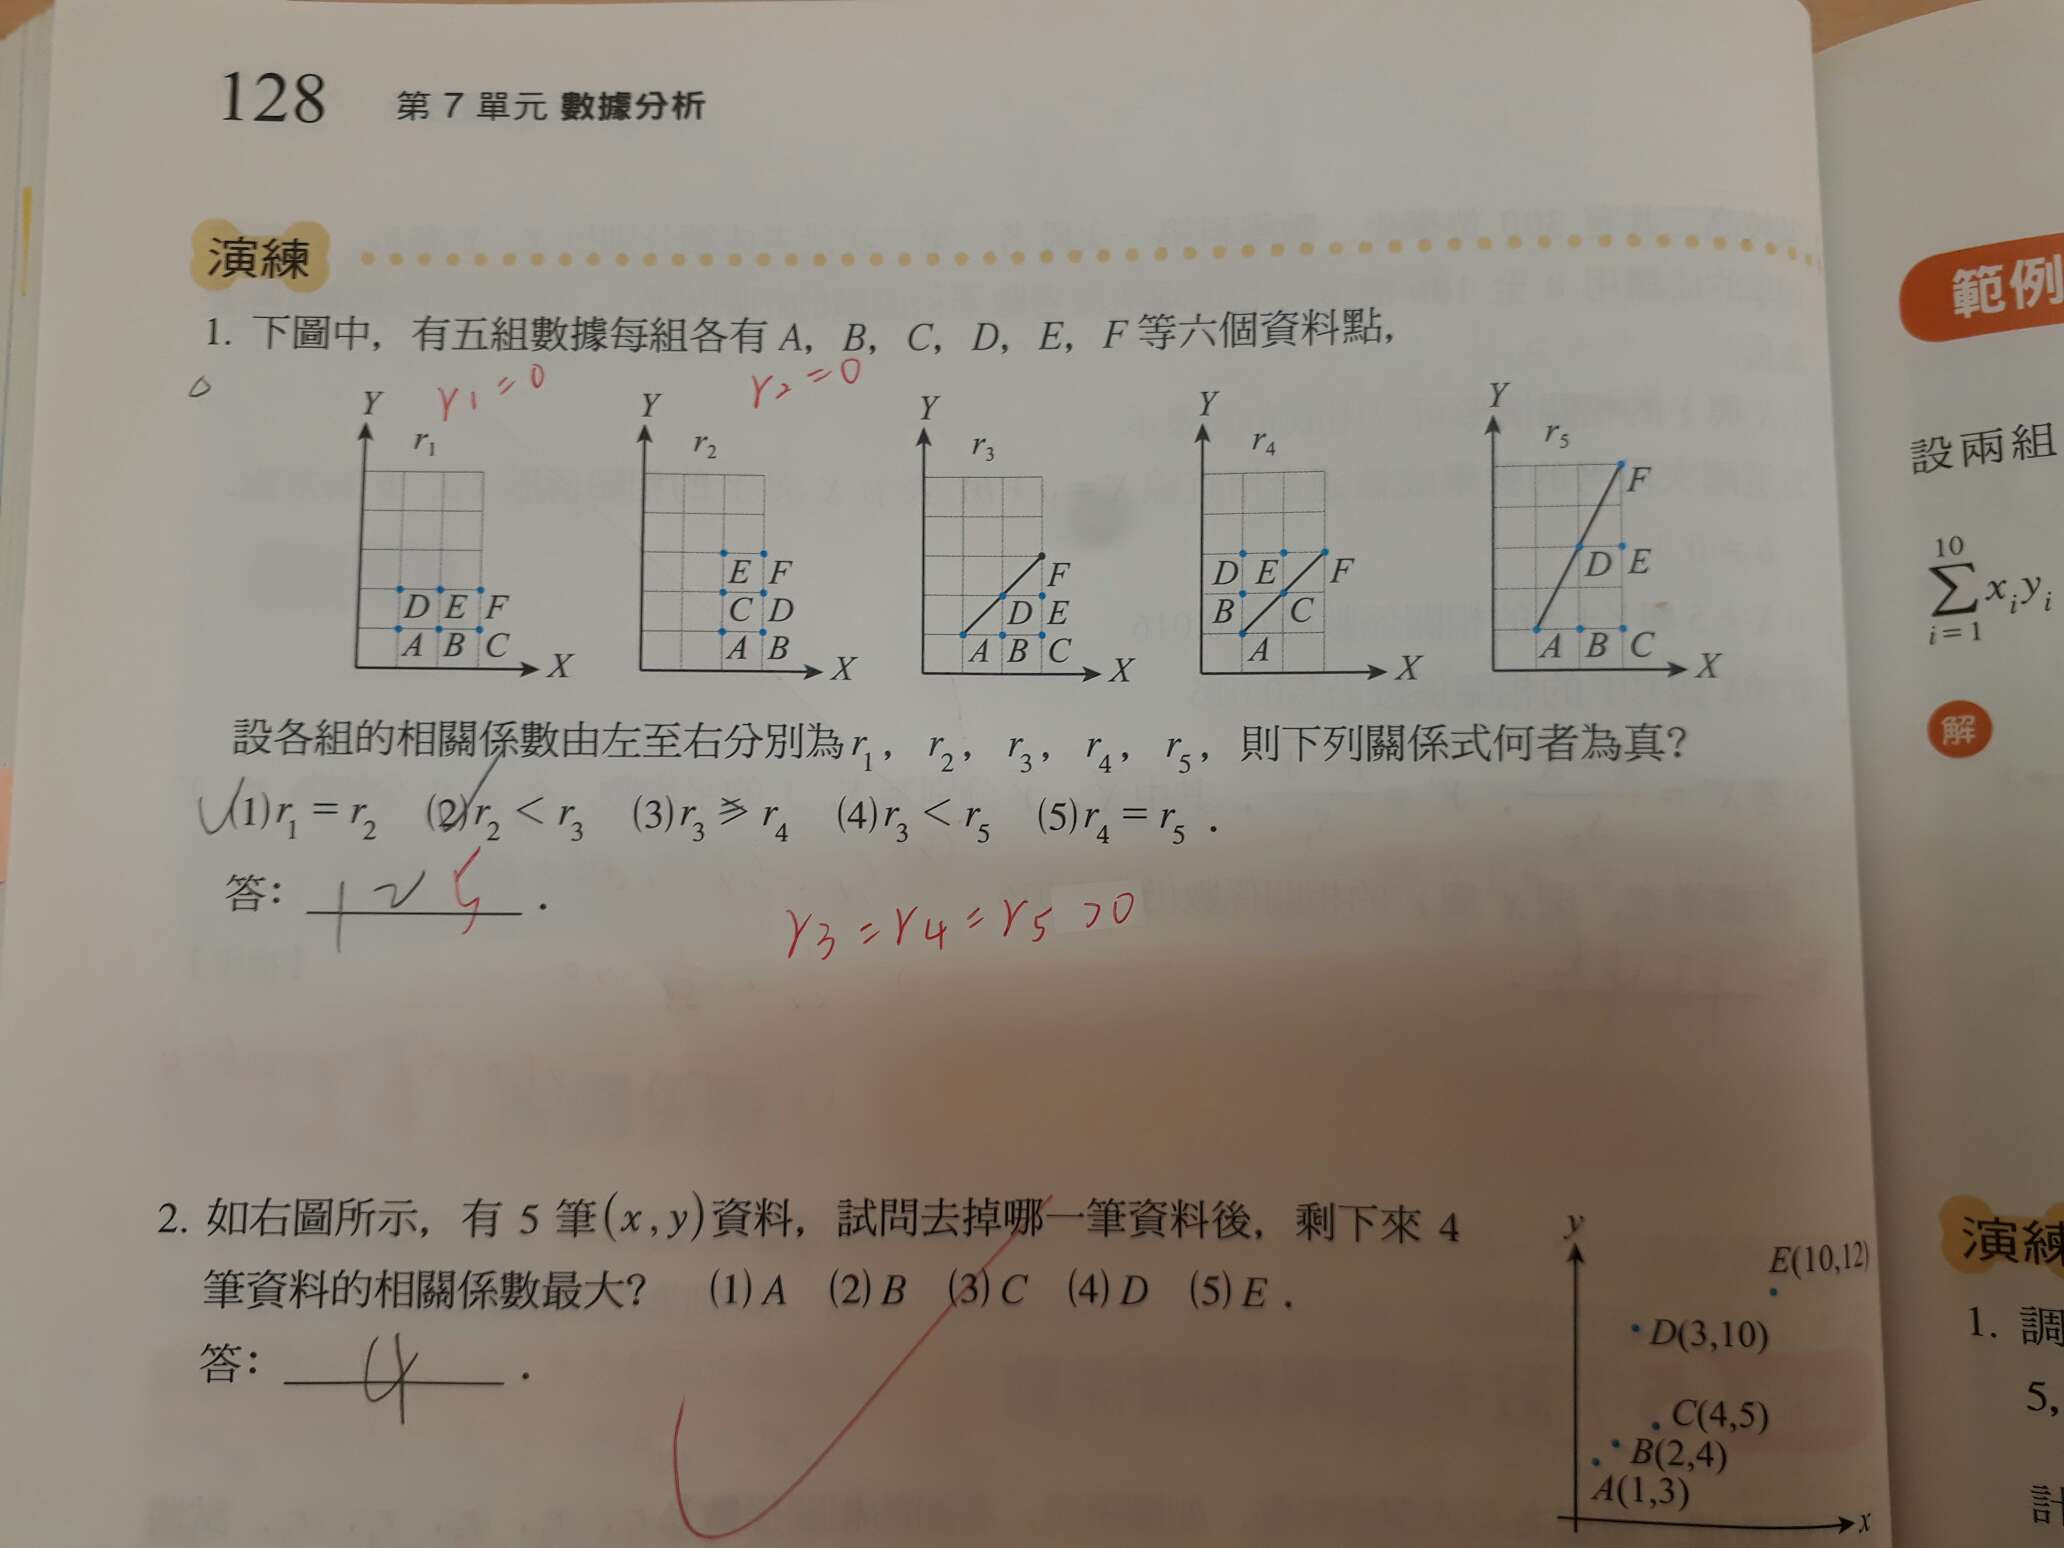 128 第 7 單元 數據分析
演練
1. 下圖中，有五組數據每組各有 A，B，C，D，E，F 等六個資料點，
r1 = 0 r2 = 0
Y Y Y Y Y
r1 r2 r3 r4 r5
F
E F F D E F D E
D E F C D D E B C
A B C A B A B C A A B C
X X X X X
設各組的相關係數由左至右分別為 r1，r2，r3，r4，r5，則下列關係式何者為真？
(1) r1 = r2 (2) r2 < r3 (3) r3 > r4 (4) r3 < r5 (5) r4 = r5．
答：1 2 5．
r3 = r4 = r5 > 0
2. 如右圖所示，有 5 筆 (x, y) 資料，試問去掉哪一筆資料後，剩下來 4
筆資料的相關係數最大？ (1) A (2) B (3) C (4) D (5) E．
答：4．
y
E(10,12)
D(3,10)
C(4,5)
B(2,4)
A(1,3)
x
範例
設兩組
10
∑ xi yi
i = 1
解
演練
1. 調
5,
計